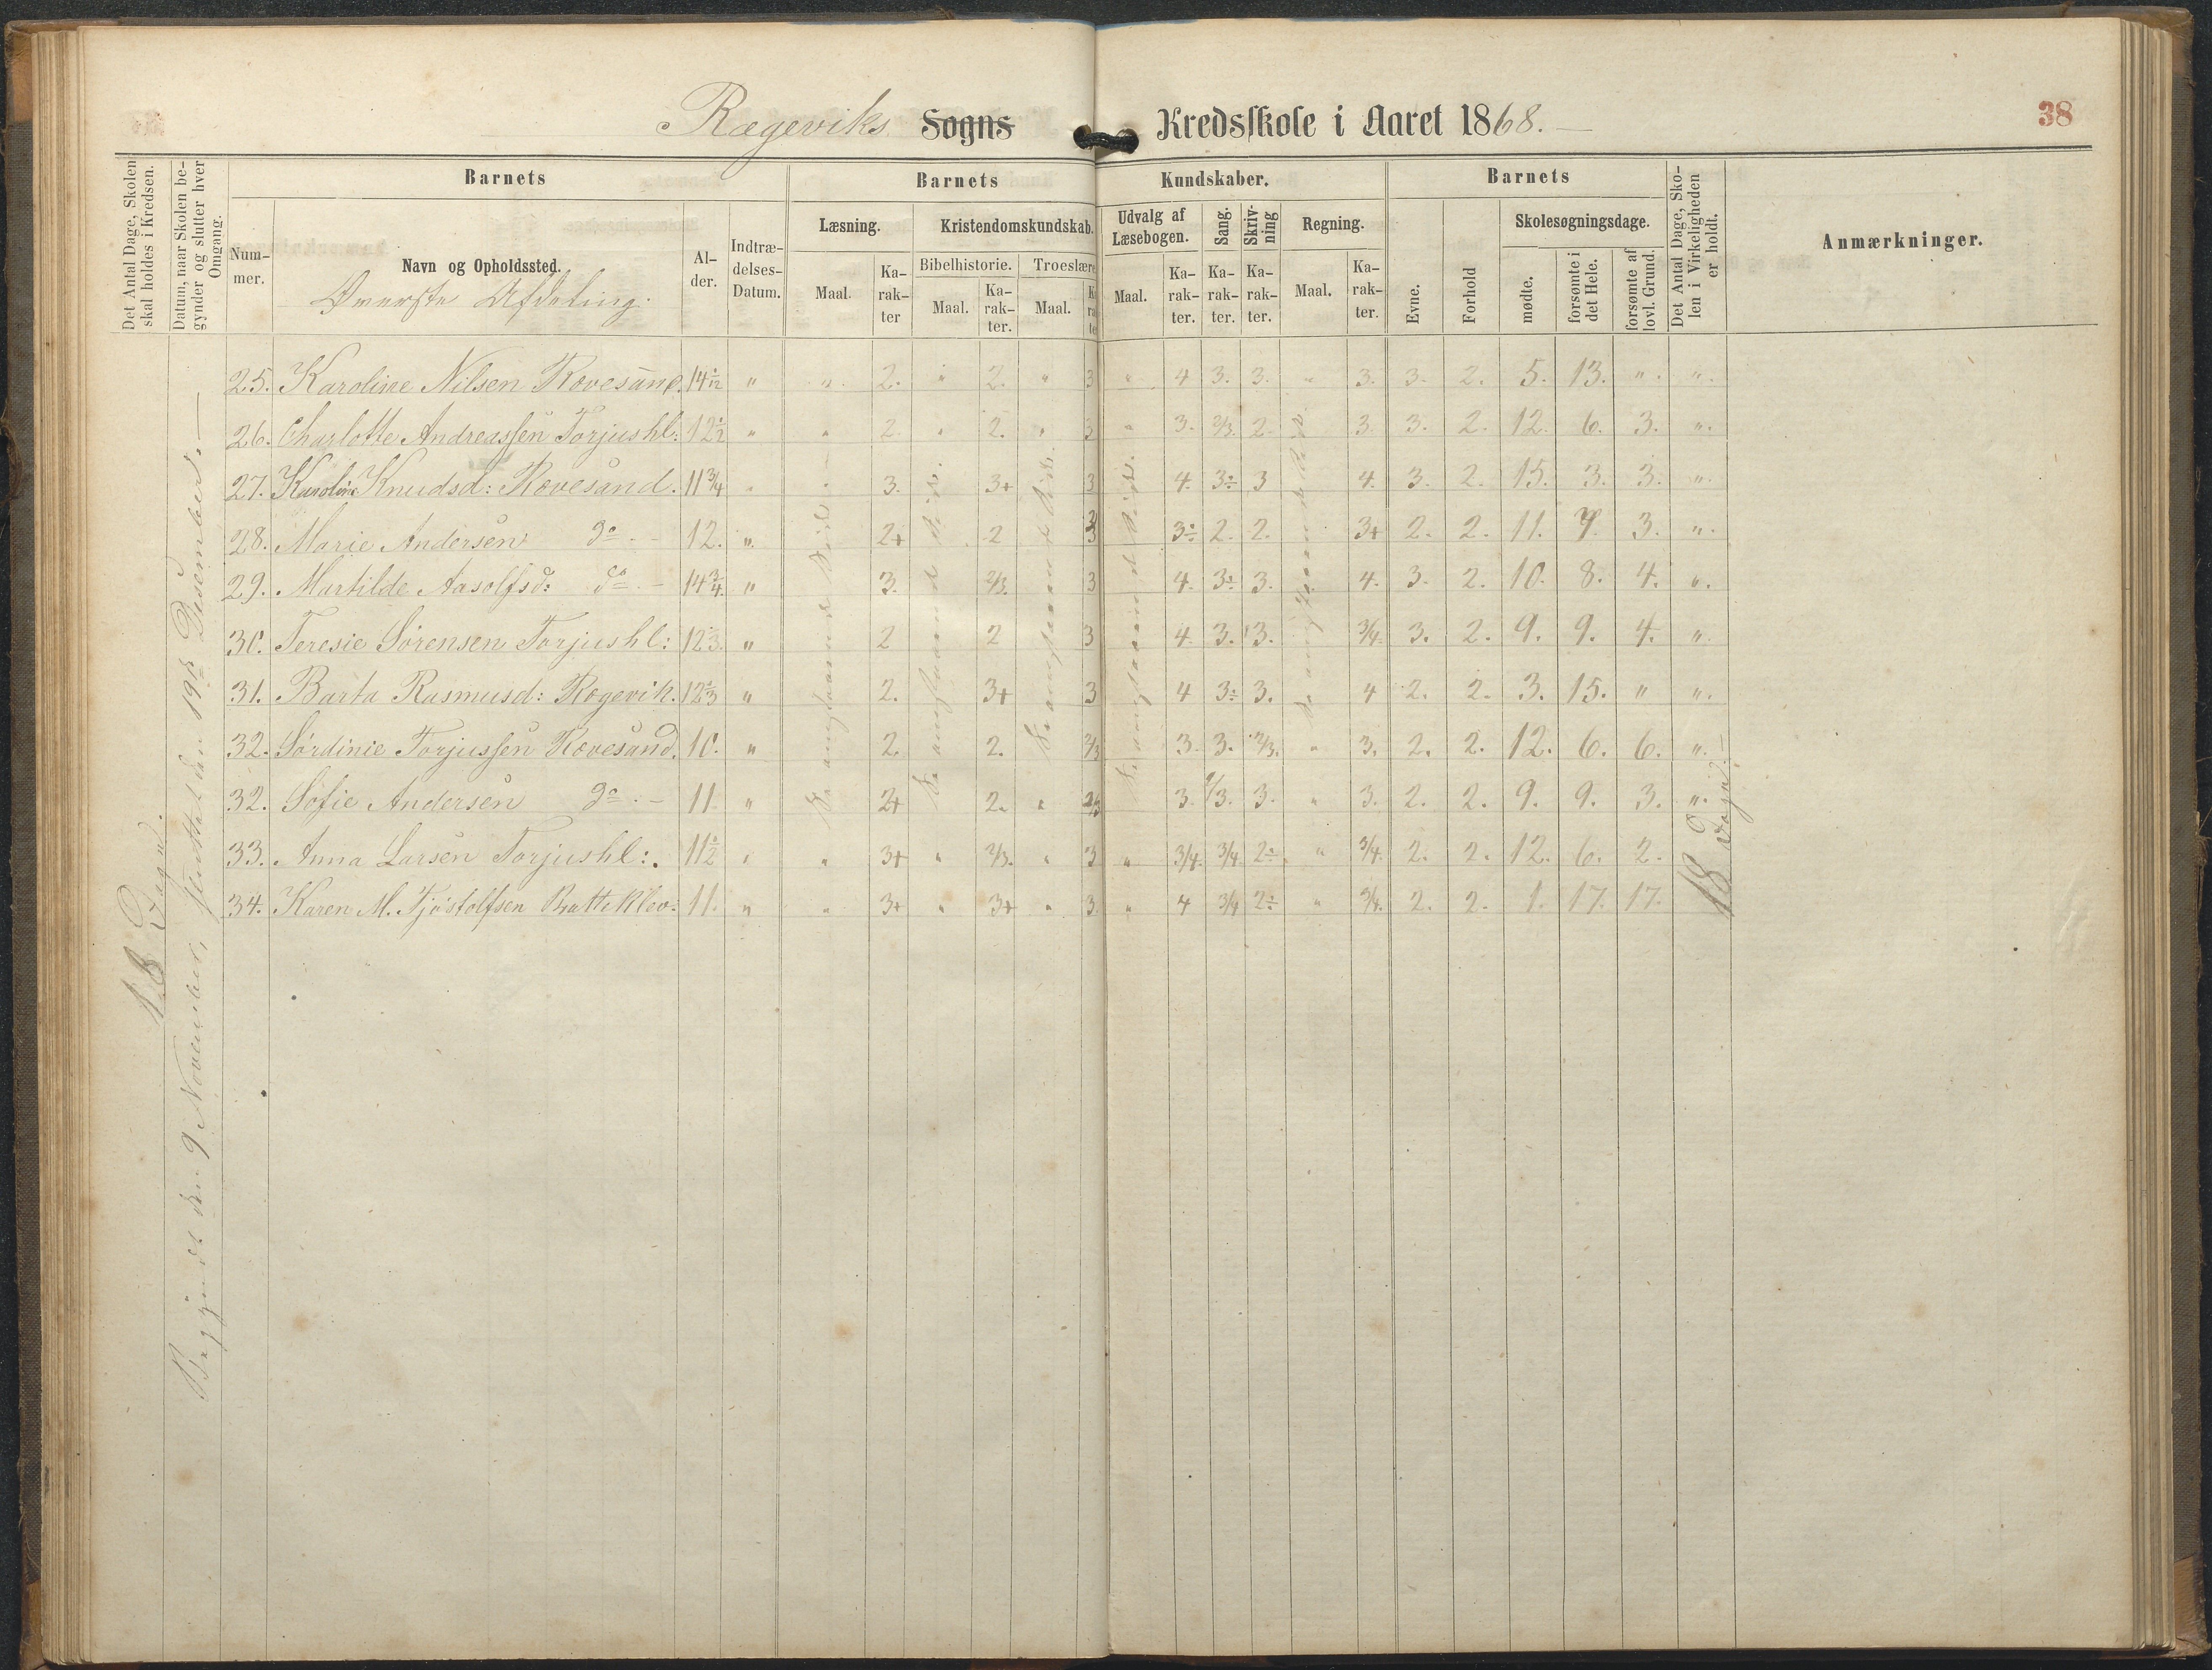 Rægeviks Sogns Kredsskole i Aaret 1868. —
38
Det Antal Dage, Skolen skal holdes i Kredsen.
Datum, naar Skolen begynder og slutter hver Omgang.
Barnets
Barnets
Kundskaber.
Barnets
Det Antal Dage, Skolen i Virkeligheden er holdt.
Anmærkninger.
Nummer.
Navn og Opholdssted.
Alder.
Indtrædelses-Datum.
Læsning.
Kristendomskundskab.
Udvalg af Læsebogen.
Sang.
Skrivning
Regning.
Evne.
Forhold
Skolesøgningsdage.
Bibelhistorie.
Troeslære
mødte.
forsømte i det Hele.
forsømte af lovl. Grund.
Maal.
Karakter
Maal.
Karakter.
Maal.
Maal.
Karakter.
Karakter.
Karakter.
Maal.
Karakter.
Øverste Afdeling.
25. Karoline Nilsen Rævesand. 14 " " 2. " 2. " 3 " 4 3. 3. " 3. 3. 2. 5. 13. " "
26. Charlotte Andreassen Torjushl: 12½ " " 2. " 2. " 3 " 3. 2/3. 2. 3. 3. 2. 12. 6. 3. "
27. Karoline Knudsd: Rævesand. 11¾ " " 3. 3+ 3 4. 3÷ 3 4. 3. 2. 15. 3. 3. "
28. Marie Andersen do. - 12. " 2+ 2 3÷ 2. 2. 3+ 2. 2. 11. 7. 3. "
29. Martilde Aasolfsd: do. - 14¾ " 3. 2/3. 3 4. 3÷ 3. 4. 3. 2. 10. 8. 4. "
30. Teresie Sörensen Torjushl: 12 " 2 2 3 4. 3. 3. 3/4. 3. 2. 9. 9. 4. "
31. Barta Rasmusd: Rægevik. 12 " 2. 3+ 3 4 3÷ 3. 4 2. 2. 3. 15. " "
32. Sördinie Torjussen Rævesand. 10. " 2. 2. 2/3 3. 3. 2/3. " 3. 2. 2. 12. 6. 6. "
32. Sofie Andersen do. - 11. " 2+ 2. " 2/3 3. 2/3. 3. " 3. 2. 2. 9. 9. 3. "
33. Anna Larsen Torjushl:. 11½ " " 3+ " 2/3. " 3 " 3/4. 3/4. 2÷ " 3/4. 2. 2. 12. 6. 2.
34. Karen M. Tjöstolfsen Batteklev: 11. " " 3+ " 3+ " 3. " 4 3/4 2÷ " 3/4. 2. 2. 1. 17. 17.
18 Dage.
Begyndt den 9 November, sluttet den 19de Desember. —
18 Dage.